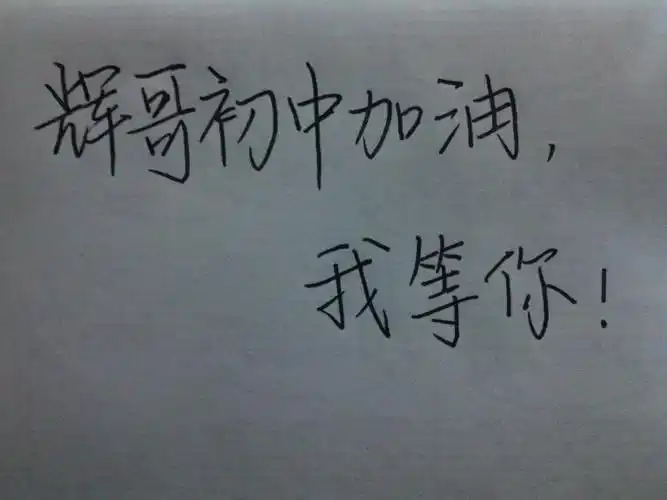 辉哥初中加油,
我等你!